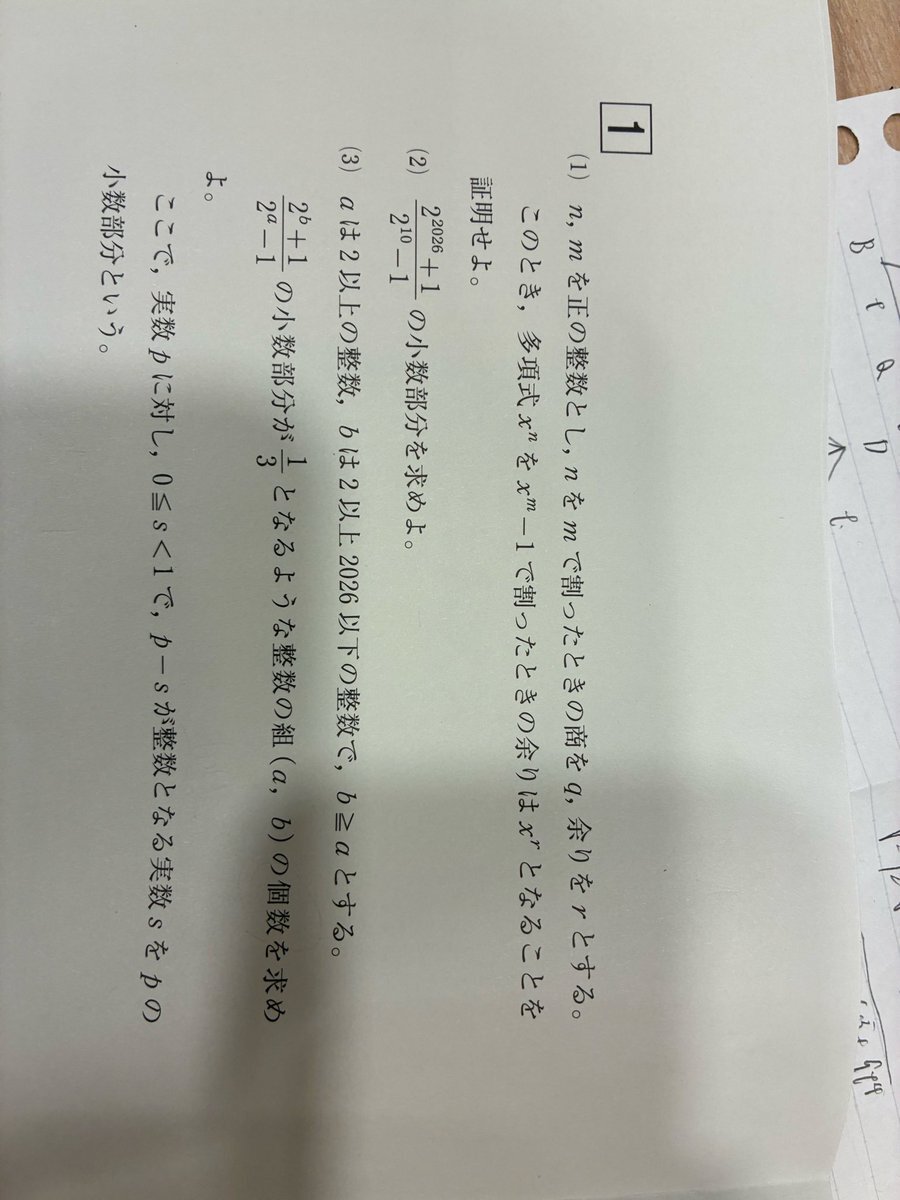 1
(1) n, m を正の整数とし, n を m で割ったときの商を q, 余りを r とする。
このとき, 多項式 xⁿ を xᵐ−1 で割ったときの余りは xʳ となることを
証明せよ。
(2) (2²⁰²⁶+1)/(2¹⁰−1) の小数部分を求めよ。
(3) a は 2 以上の整数, b は 2 以上 2026 以下の整数で, b≧a とする。
(2ᵇ+1)/(2ᵃ−1) の小数部分が 1/3 となるような整数の組 (a, b) の個数を求め
よ。
ここで, 実数 p に対し, 0≦s<1 で, p−s が整数となる実数 s を p の
小数部分という。
B
Q
D